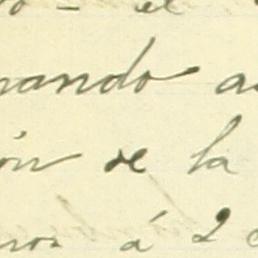 o - el
nando a
ón de la
nos á 2